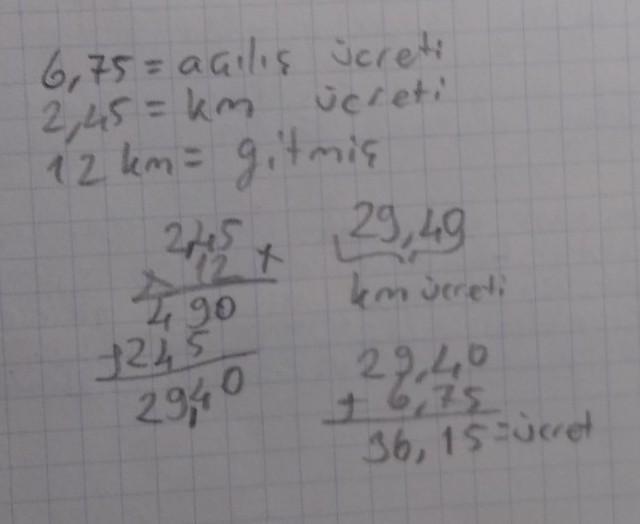 6,75 = açılış ücreti
2,45 = km ücreti
12 km = gitmiş
2,45
12 x
490
+245
29,40
29,49
km ücreti
29,40
+ 6,75
36,15 = ücret